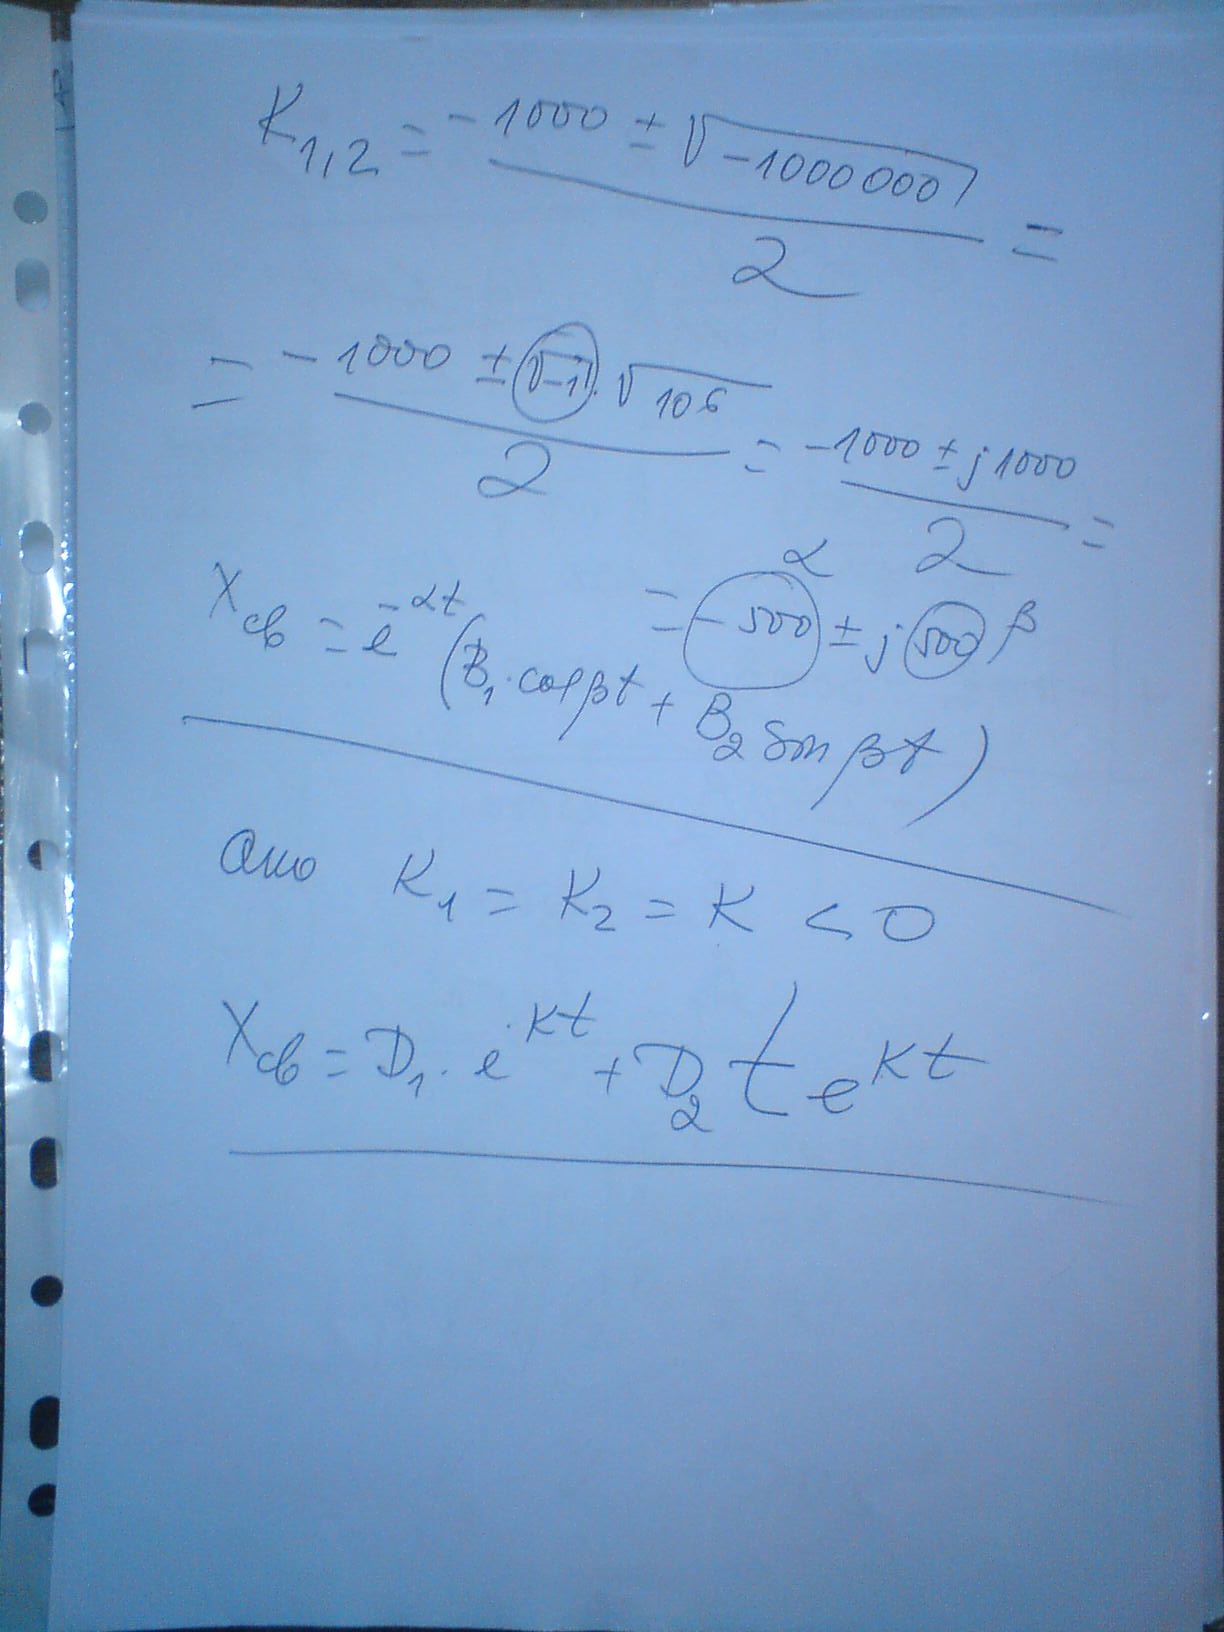 K₁,₂ = (-1000 ± √(-1000000)) / 2 =
= (-1000 ± √-1 · √10⁶) / 2 = (-1000 ± j1000) / 2 =
= -500 ± j 500
α β
Xсв = e^(-αt) (B₁ · cos βt + B₂ sin βt)
Ако K₁ = K₂ = K < 0
Xсв = D₁ · e^(Kt) + D₂ t e^(Kt)